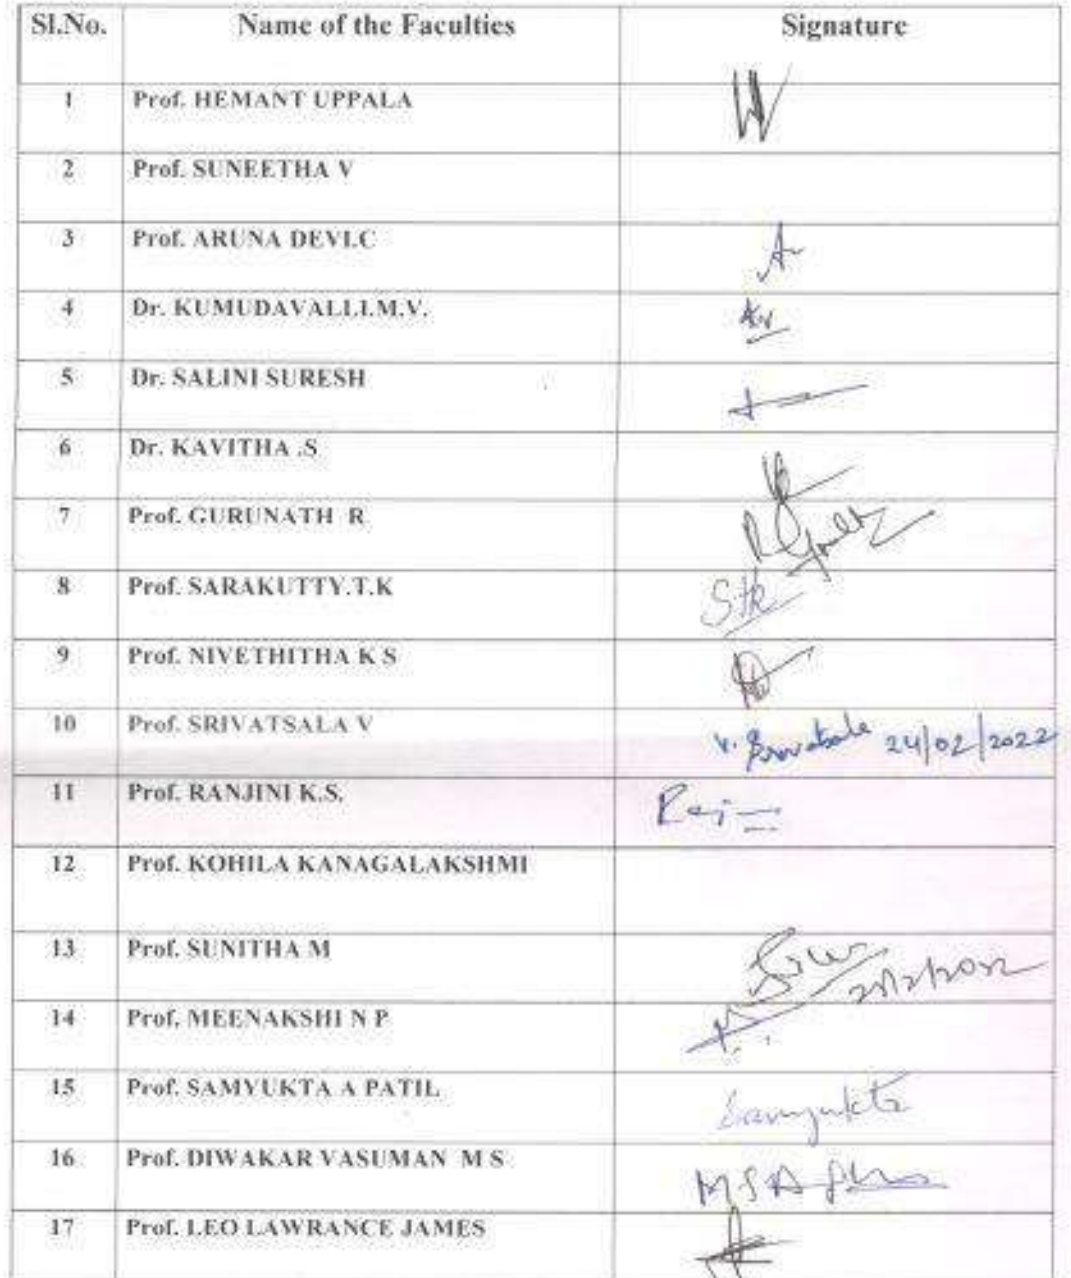 Sl.No. Name of the Faculties Signature
1 Prof. HEMANT UPPALA
2 Prof. SUNEETHA V
3 Prof. ARUNA DEVI.C
4 Dr. KUMUDAVALLI.M.V.
5 Dr. SALINI SURESH
6 Dr. KAVITHA .S
7 Prof. GURUNATH R
8 Prof. SARAKUTTY.T.K Stk
9 Prof. NIVETHITHA K S
10 Prof. SRIVATSALA V V. Srivatsala 24/02/2022
11 Prof. RANJINI K.S.
12 Prof. KOHILA KANAGALAKSHMI
13 Prof. SUNITHA M
14 Prof. MEENAKSHI N P
15 Prof. SAMYUKTA A PATIL Samyukta
16 Prof. DIWAKAR VASUMAN M S
17 Prof. LEO LAWRANCE JAMES